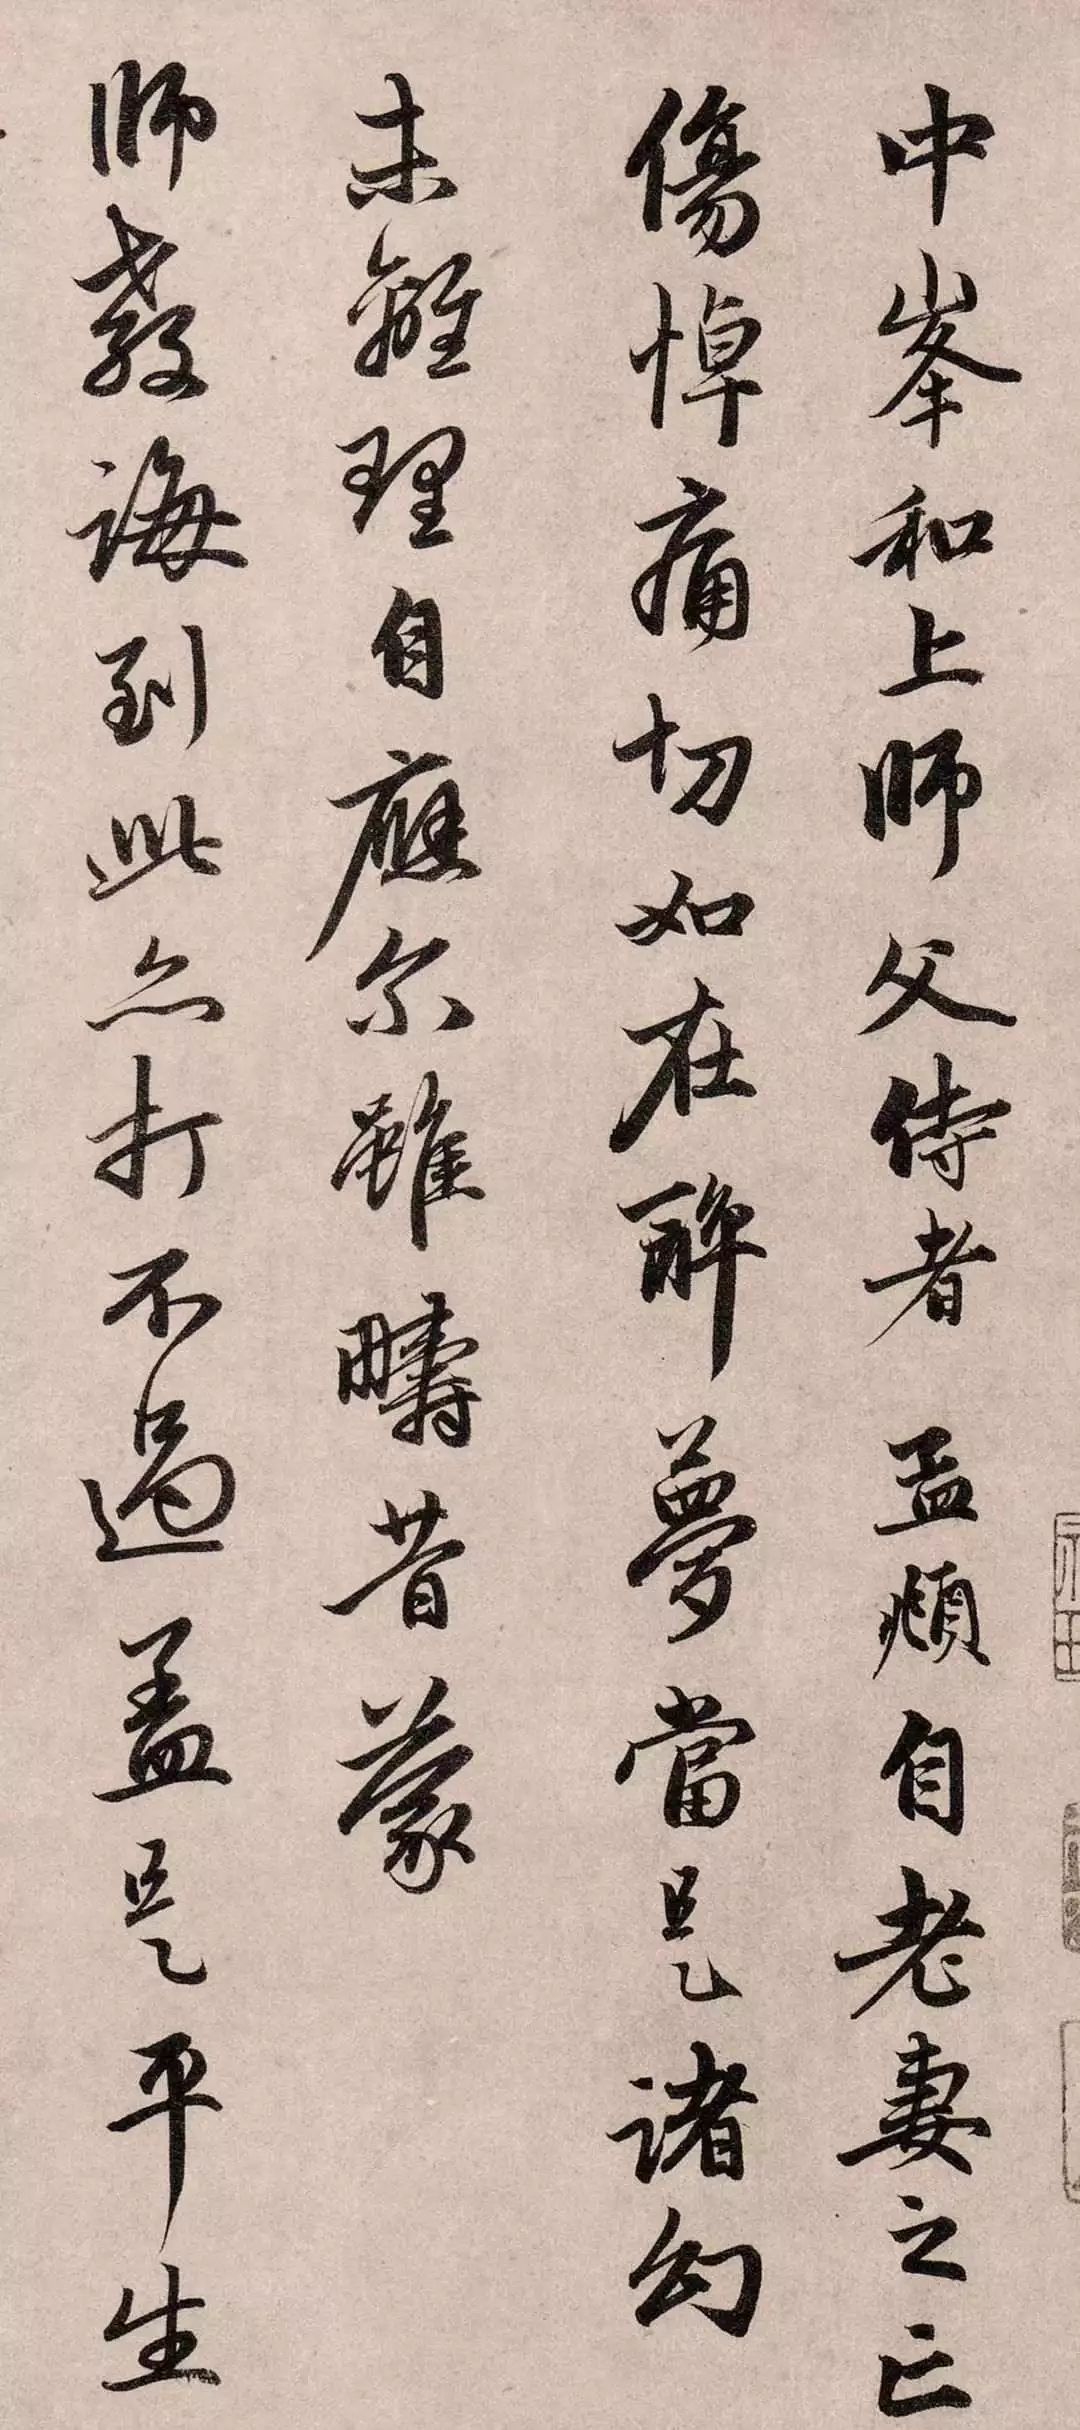 中峯和上師父侍者孟頫自老妻之亡
傷悼痛切如在醉夢當是諸幻
未離理自應尔雖疇昔蒙
師教誨到此亦打不過盖是平生